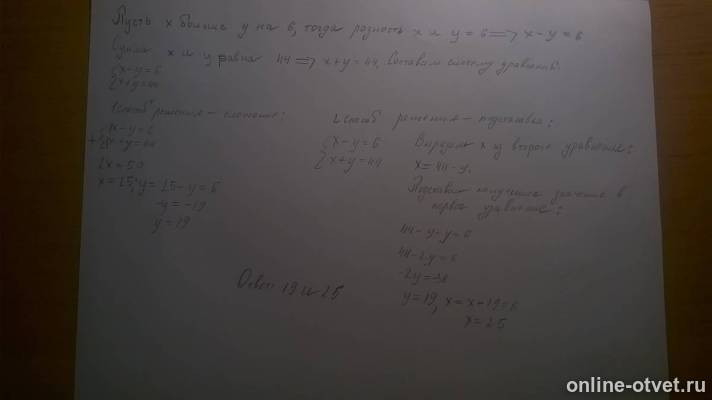 Пусть x больше y на 6, тогда разность x и y = 6 => x - y = 6
Сумма x и y равна 44 => x + y = 44. Составим систему уравнений:
{x - y = 6
{x + y = 44
1 способ решения - сложение:
{x - y = 6
+ {x + y = 44
2x = 50
x = 25, y = 25 - y = 6
-y = -19
y = 19
2 способ решения - подстановка:
{x - y = 6
{x + y = 44
Выразим x из второго уравнения:
x = 44 - y.
Подставим полученное значение в
первое уравнение:
44 - y - y = 6
44 - 2y = 6
-2y = -38
y = 19, x = x - 19 = 6
x = 25
Ответ: 19 и 25
online-otvet.ru